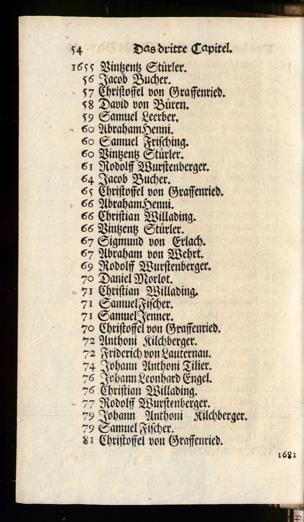 54 Das dritte Capitel.
1655 Vintzentz Stürler.
56 Jacob Bucher.
57 Christoffel von Graffenried.
58 David von Büren.
59 Samuel Leerber.
60 Abraham Henni.
60 Samuel Frisching.
60 Vintzentz Stürler.
61 Rodolff Wurstenberger.
64 Jacob Bucher.
65 Christoffel von Graffenried.
66 Abraham Henni.
66 Christian Willading.
66 Vintzentz Stürler.
67 Sigmund von Erlach.
67 Abraham von Wehrt.
69 Rodolff Wurstenberger.
70 Daniel Morlot.
71 Christian Willading.
71 Samuel Fischer.
71 Samuel Jenner.
70 Christoffel von Graffenried.
72 Anthoni Kilchberger.
72 Friderich von Lauternau.
74 Johann Anthoni Tilier.
76 Johann Leonhard Engel.
76 Christian Willading.
77 Rodolff Wurstenberger.
79 Johann Anthoni Kilchberger.
79 Samuel Fischer.
81 Christoffel von Graffenried.
1681